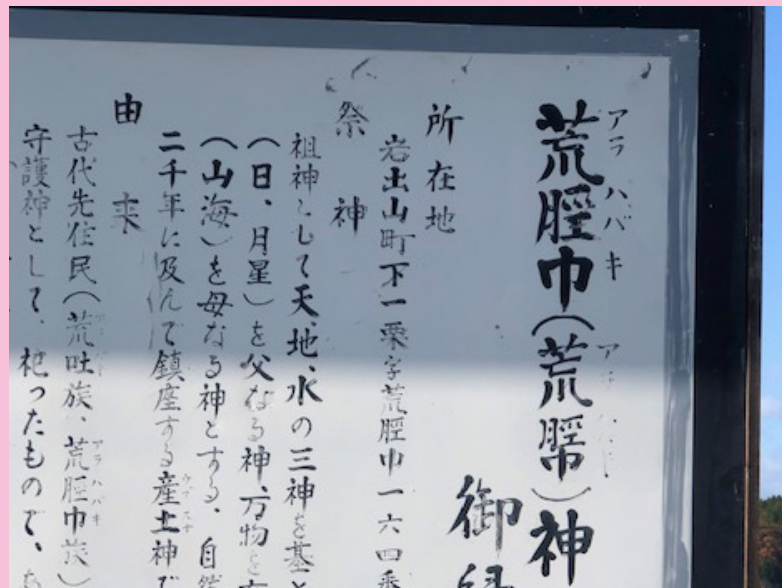 荒脛巾(荒脛巾)神
アラハバキ
御
所在地
岩出山町下一栗字荒脛巾一六四番
祭神
祖神として天、地、水の三神を基と
(日、月星)を父なる神、万物を
(山海)を母なる神とする、自然
二千年に及んで鎮座する産土神で
ウブスナ
由来
古代先住民(荒吐族、荒脛巾族)
アラハバキ
守護神として、祀ったもので、